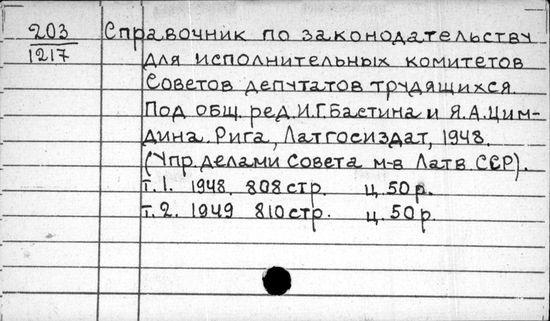 203
1217
Справочник по законодательству
для исполнительных комитетов
Советов депутатов трудящихся.
Под общ. ред. И.Г.Бастина и Я.А.Цим-
дина. Рига, Латгосиздат, 1948.
(Упр. делами Совета м-в Латв ССР).
т. 1. 1948. 808 стр. ц. 50 р.
т. 2. 1949 810 стр. ц. 50 р.